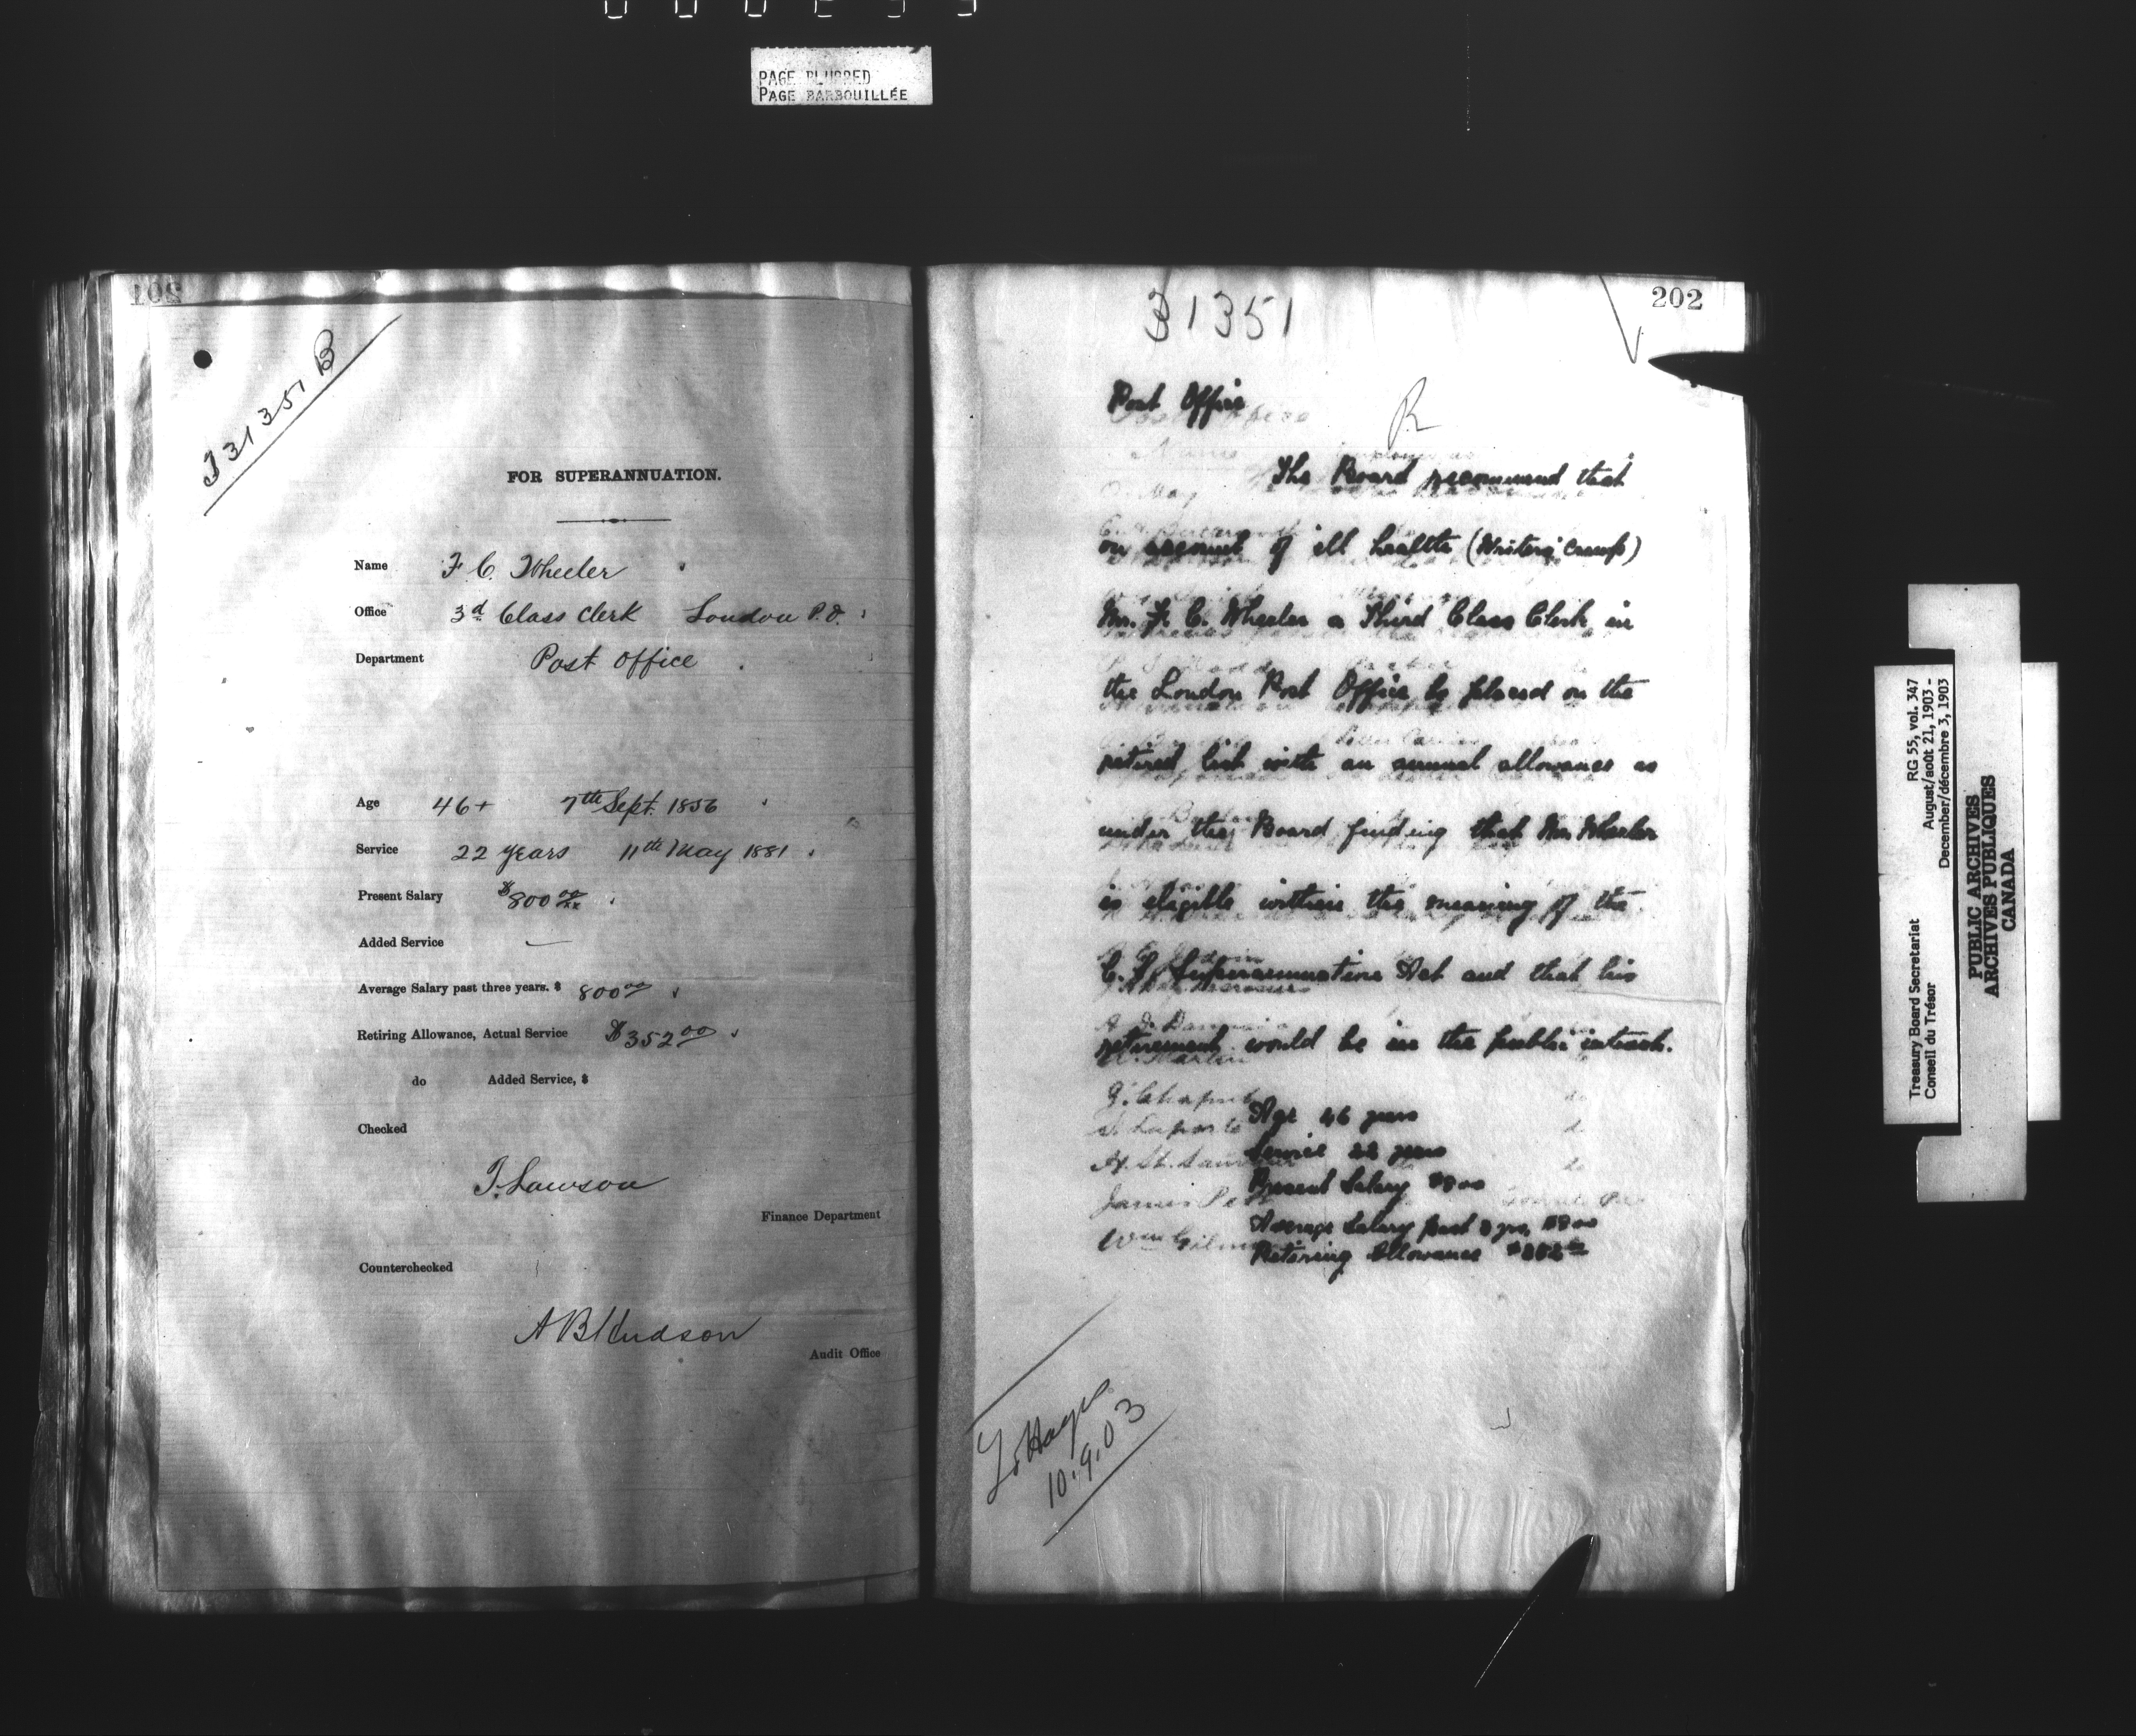 PAGE BLURRED
PAGE BARBOUILLÉE
201
T 31351 B
FOR SUPERANNUATION.
Name F. C. Wheeler
Office 3d Class Clerk London P.O.
Department Post Office
Age 46+ 7th Sept. 1856
Service 22 years 11th May 1881
Present Salary $800 00/xx
Added Service —
Average Salary past three years. $ 800 00
Retiring Allowance, Actual Service $352 00
do Added Service, $
Checked
T. Lawson
Finance Department
Counterchecked
A B Hudson
Audit Office
202
31351
Post Office
R
The Board recommend that
on account of ill health (Writers' Cramp)
Mr. F. C. Wheeler a Third Class Clerk in
the London Post Office be placed on the
retired list with an annual allowance as
under the Board finding that Mr. Wheeler
is eligible within the meaning of the
C. S. Superannuation Act and that his
retirement would be in the public interest.
Age 46 years
Service 22 years
Present Salary $800
Average Salary past 3 yrs, $800
Retiring Allowance $352 00
10.9.03
Treasury Board Secretariat RG 55, vol. 347
Conseil du Trésor August/août 21, 1903 -
December/décembre 3, 1903
PUBLIC ARCHIVES
ARCHIVES PUBLIQUES
CANADA